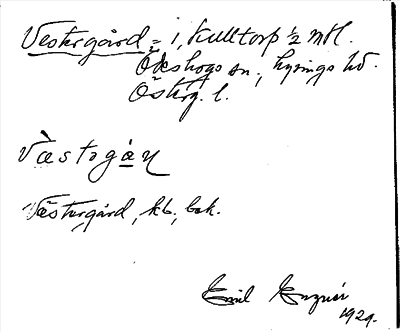 Vestergård = 1, Kulltorp ½ mtl.
Ökshogs sn., Lysings hd.
Österg. l.
Vàstəgáɳ
Västergård, kb., bok.
Emil Enqvist
1929.